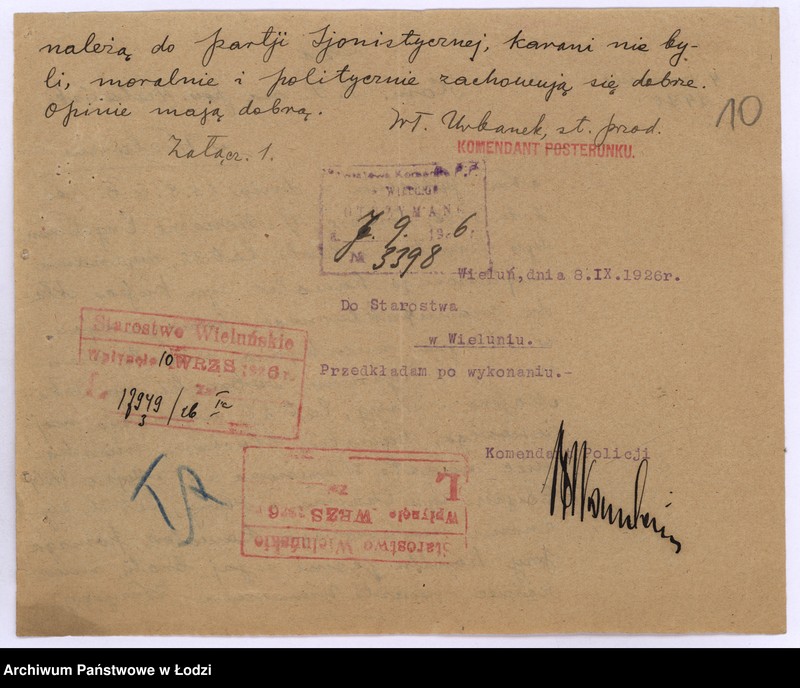 należą do partji Sjonistycznej, karani nie by-
li, moralnie i politycznie zachowują się dobrze.
Opinie mają dobrą.
Wł. Urbanek, st. przod.
10
Załącz. 1.
KOMENDANT POSTERUNKU.
Powiatowa Komenda P.P.
OTRZYMANO
9. 1926.
№ 3398
Wieluń, dnia 8.IX.1926r.
Do Starostwa
w Wieluniu.
Przedkładam po wykonaniu.-
Starostwo Wieluńskie
Wpłynęło 10 WRZS 1926 r.
L.
Zał.
Komendant Policji
L
Zał.
Wpłynęło WRZS 1926 r.
Starostwo Wieluńskie
Archiwum Państwowe w Łodzi